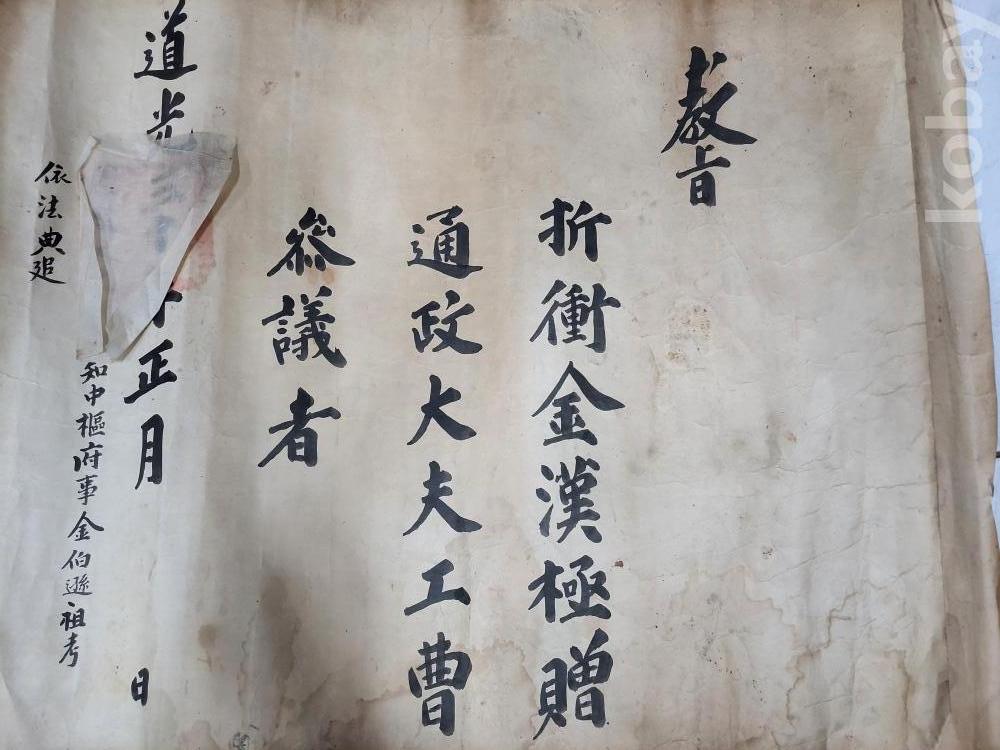 敎旨
折衝金漢極贈
通政大夫工曹
叅議者
道光
正月
日
知中樞府事金伯遜祖考
依法典追
kobay